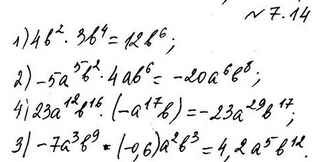 № 7.14
1) 4b² · 3b⁴ = 12b⁶;
2) -5a⁵b² · 4ab⁶ = -20a⁶b⁸;
4) 23a¹²b¹⁶ · (-a¹⁷b) = -23a²⁹b¹⁷;
3) -7a³b⁹ · (-0,6)a²b³ = 4,2a⁵b¹².